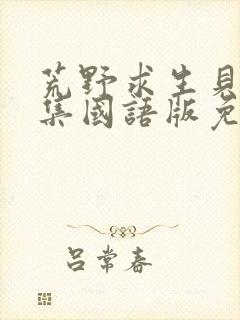 荒野求生見
集國語版免
呂常春